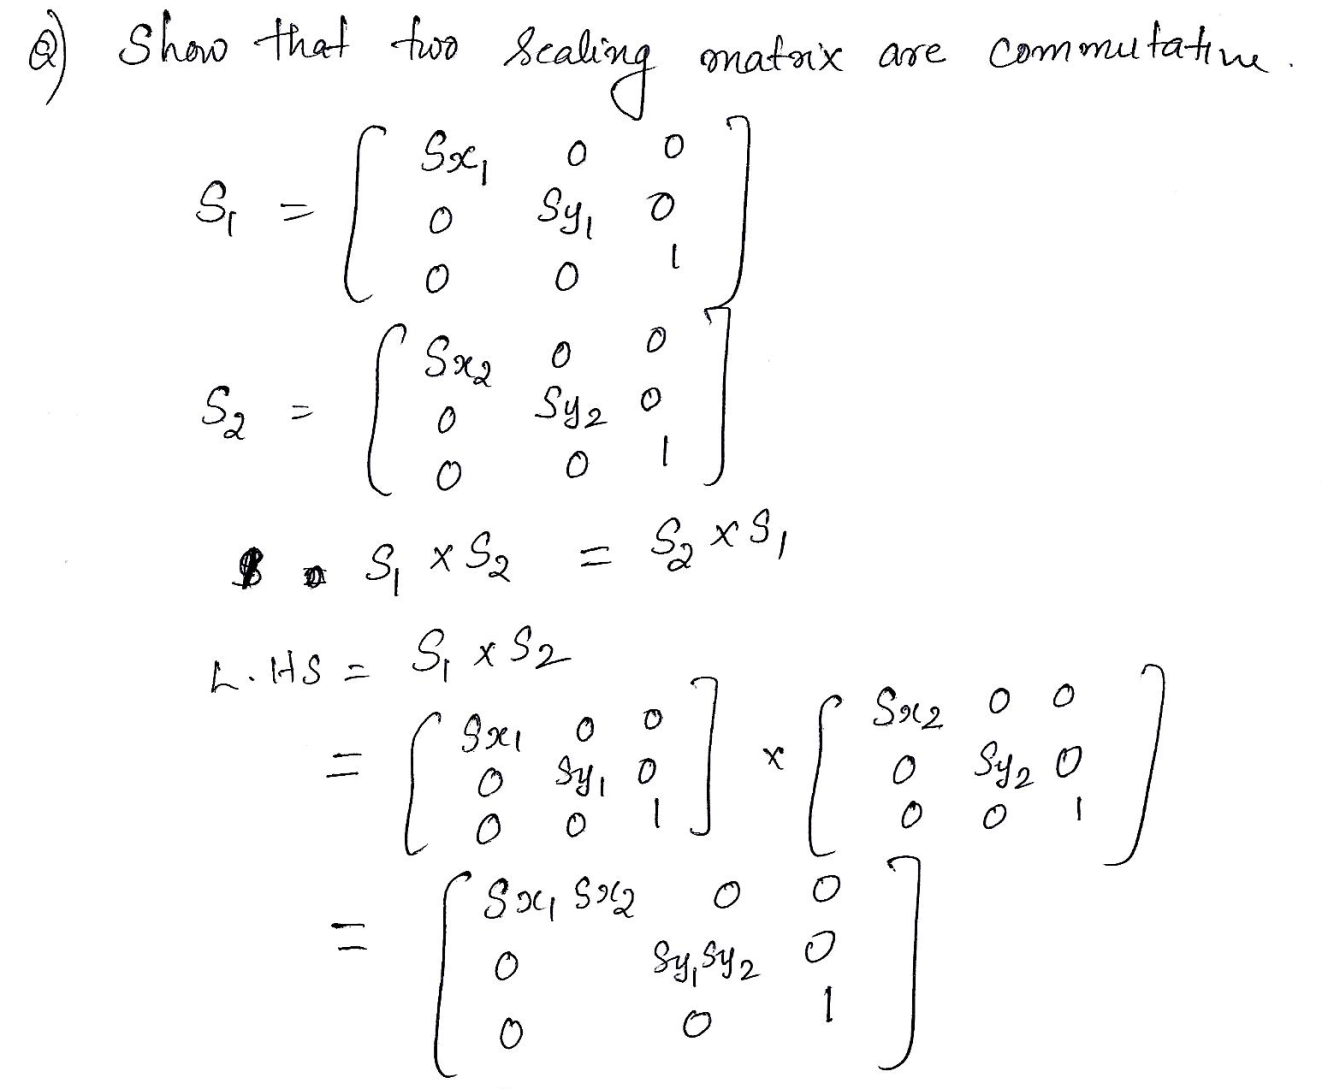 Q) Show that two Scaling matrix are commutative.
S₁ = [ Sx₁ 0 0
0 Sy₁ 0
0 0 1 ]
S₂ = [ Sx₂ 0 0
0 Sy₂ 0
0 0 1 ]
S₁ × S₂ = S₂ × S₁
L.HS = S₁ × S₂
= [ Sx₁ 0 0 ] × [ Sx₂ 0 0 ]
0 Sy₁ 0 0 Sy₂ 0
0 0 1 0 0 1
= [ Sx₁ Sx₂ 0 0
0 Sy₁ Sy₂ 0
0 0 1 ]